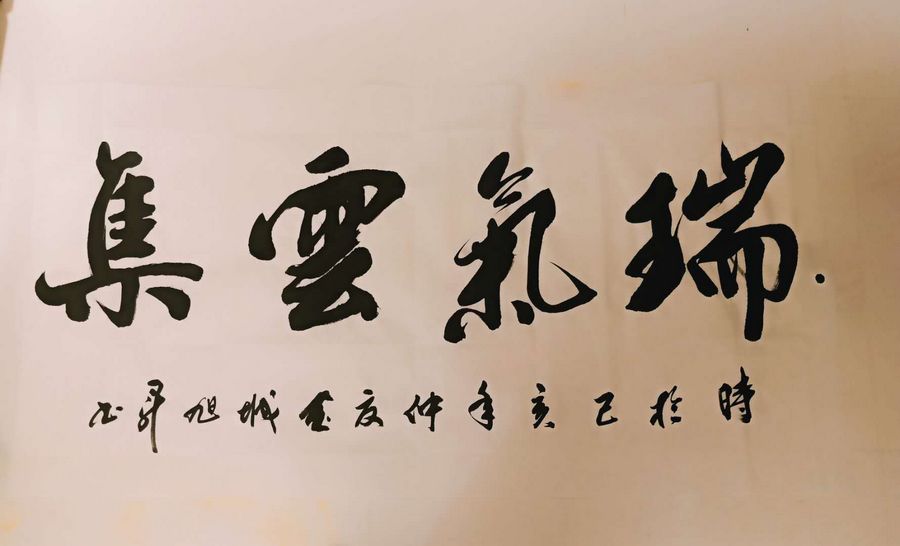 瑞氣雲集
時於己亥年仲夏金城旭昇书